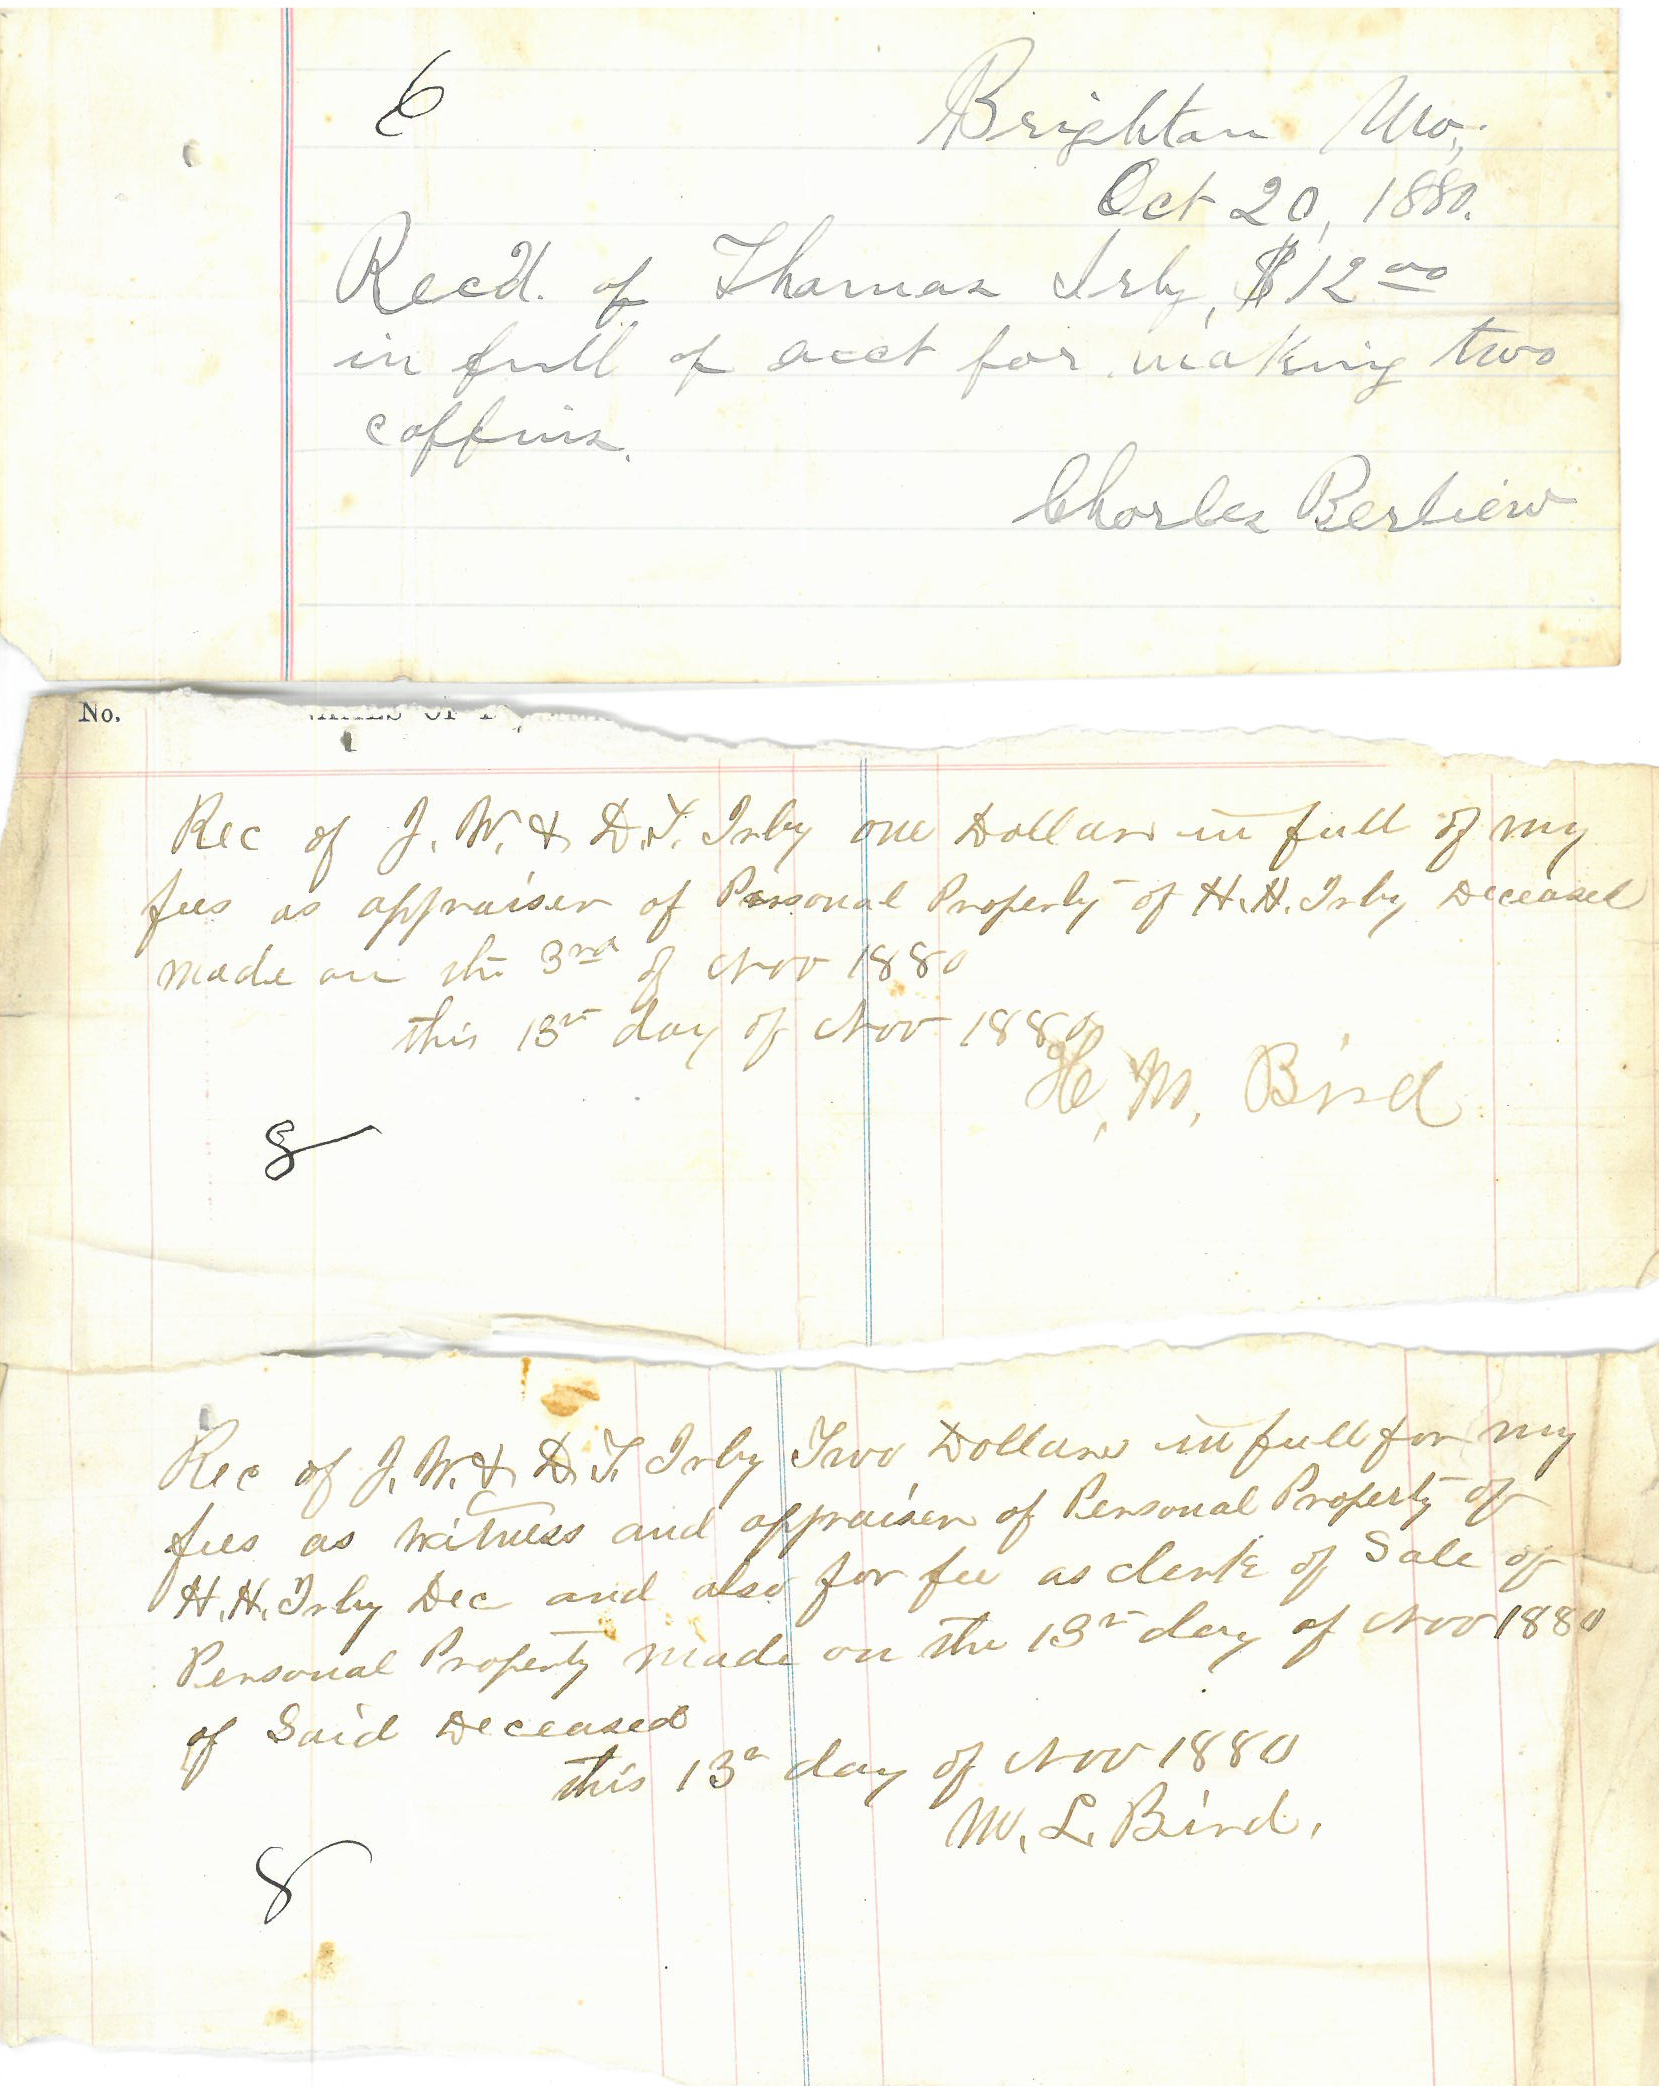 6
Brighton Mo,.
Oct 20, 1880.
Recd. of Thomas Irby, $12 00
in full of acct for making two
coffins.
Charles Berliew
No.
Rec of J. W. & D. T. Irby one Dollar in full of my
fees as appraiser of Personal Property of H. H. Irby Deceased
made on the 3rd of Nov 1880
this 13th day of Nov 1880
H. M. Bird
8
Rec of J. W. & D. T. Irby Two Dollars in full for my
fees as witness and appraiser of Personal Property of
H. H. Irby Dec and also for fee as clerk of Sale of
Personal Property made on the 13th day of Nov 1880
of Said Deceased
this 13th day of Nov 1880
M. L. Bird.
8